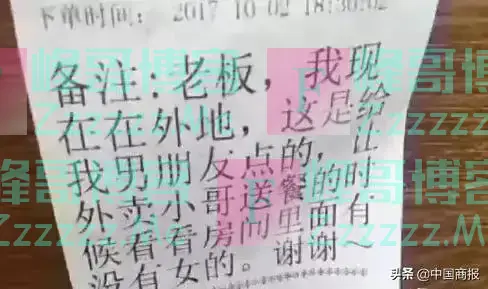 下单时间: 2017-10-02 18:30:02
备注:老板,我现
在在外地,这是给
我男朋友点的,让
外卖小哥送餐的时
候看看房间里面有
没有女的。谢谢~
峰哥博客
Zzzzzz.
头条@中国商报